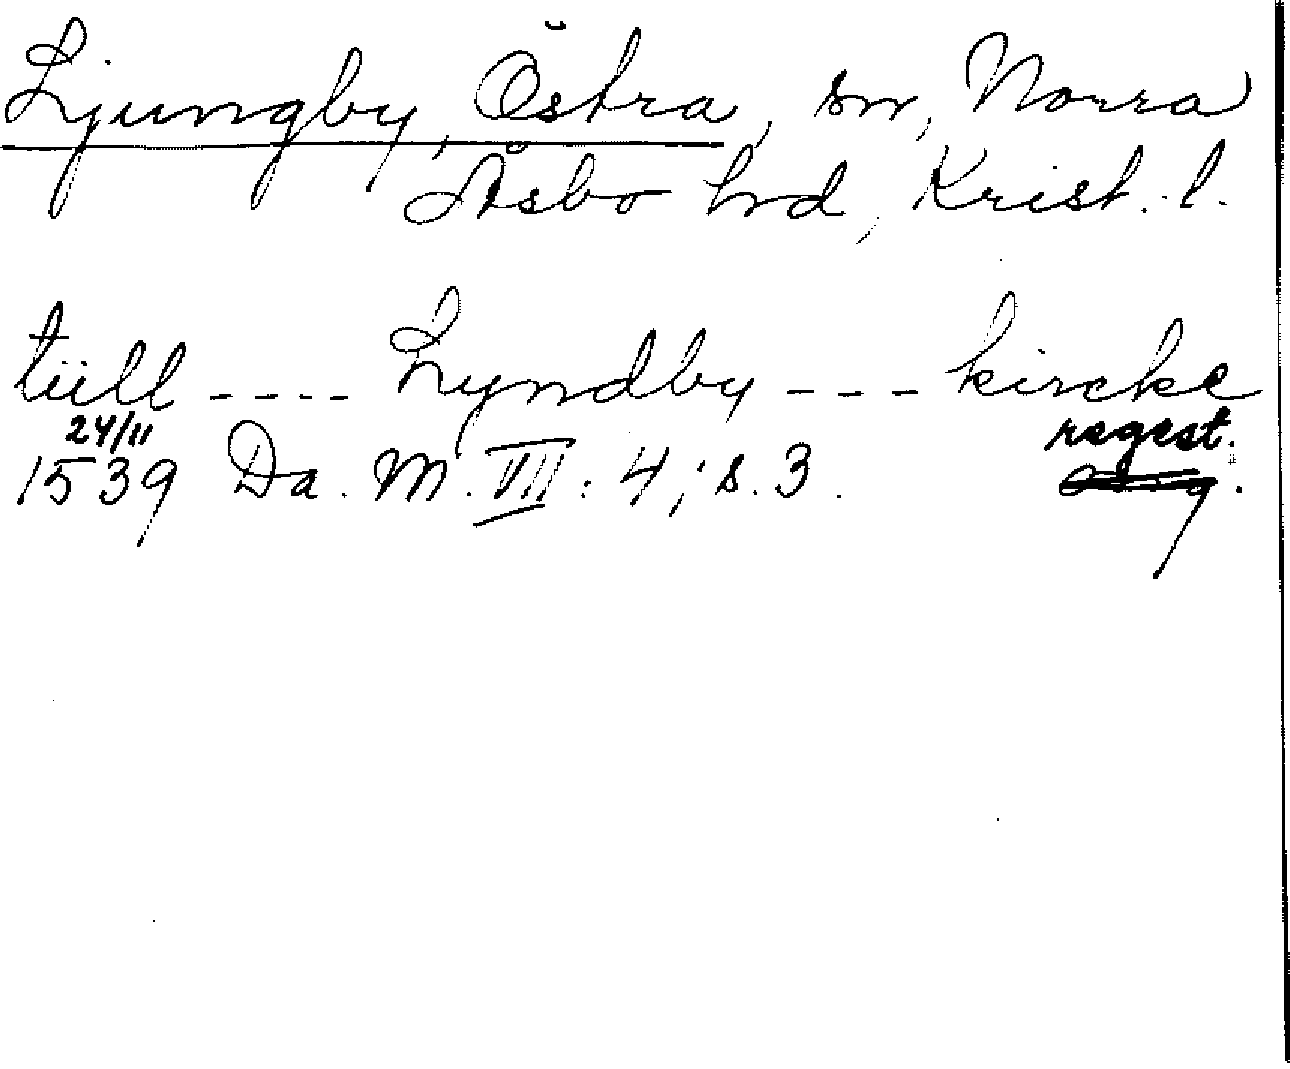 Ljungby, Östra, sn, Norra
Åsbo hrd, Krist. l.
tüll ---- Lyndby --- kircke
24/11 regest.
1539 Da. M. VII: 4; s. 3.